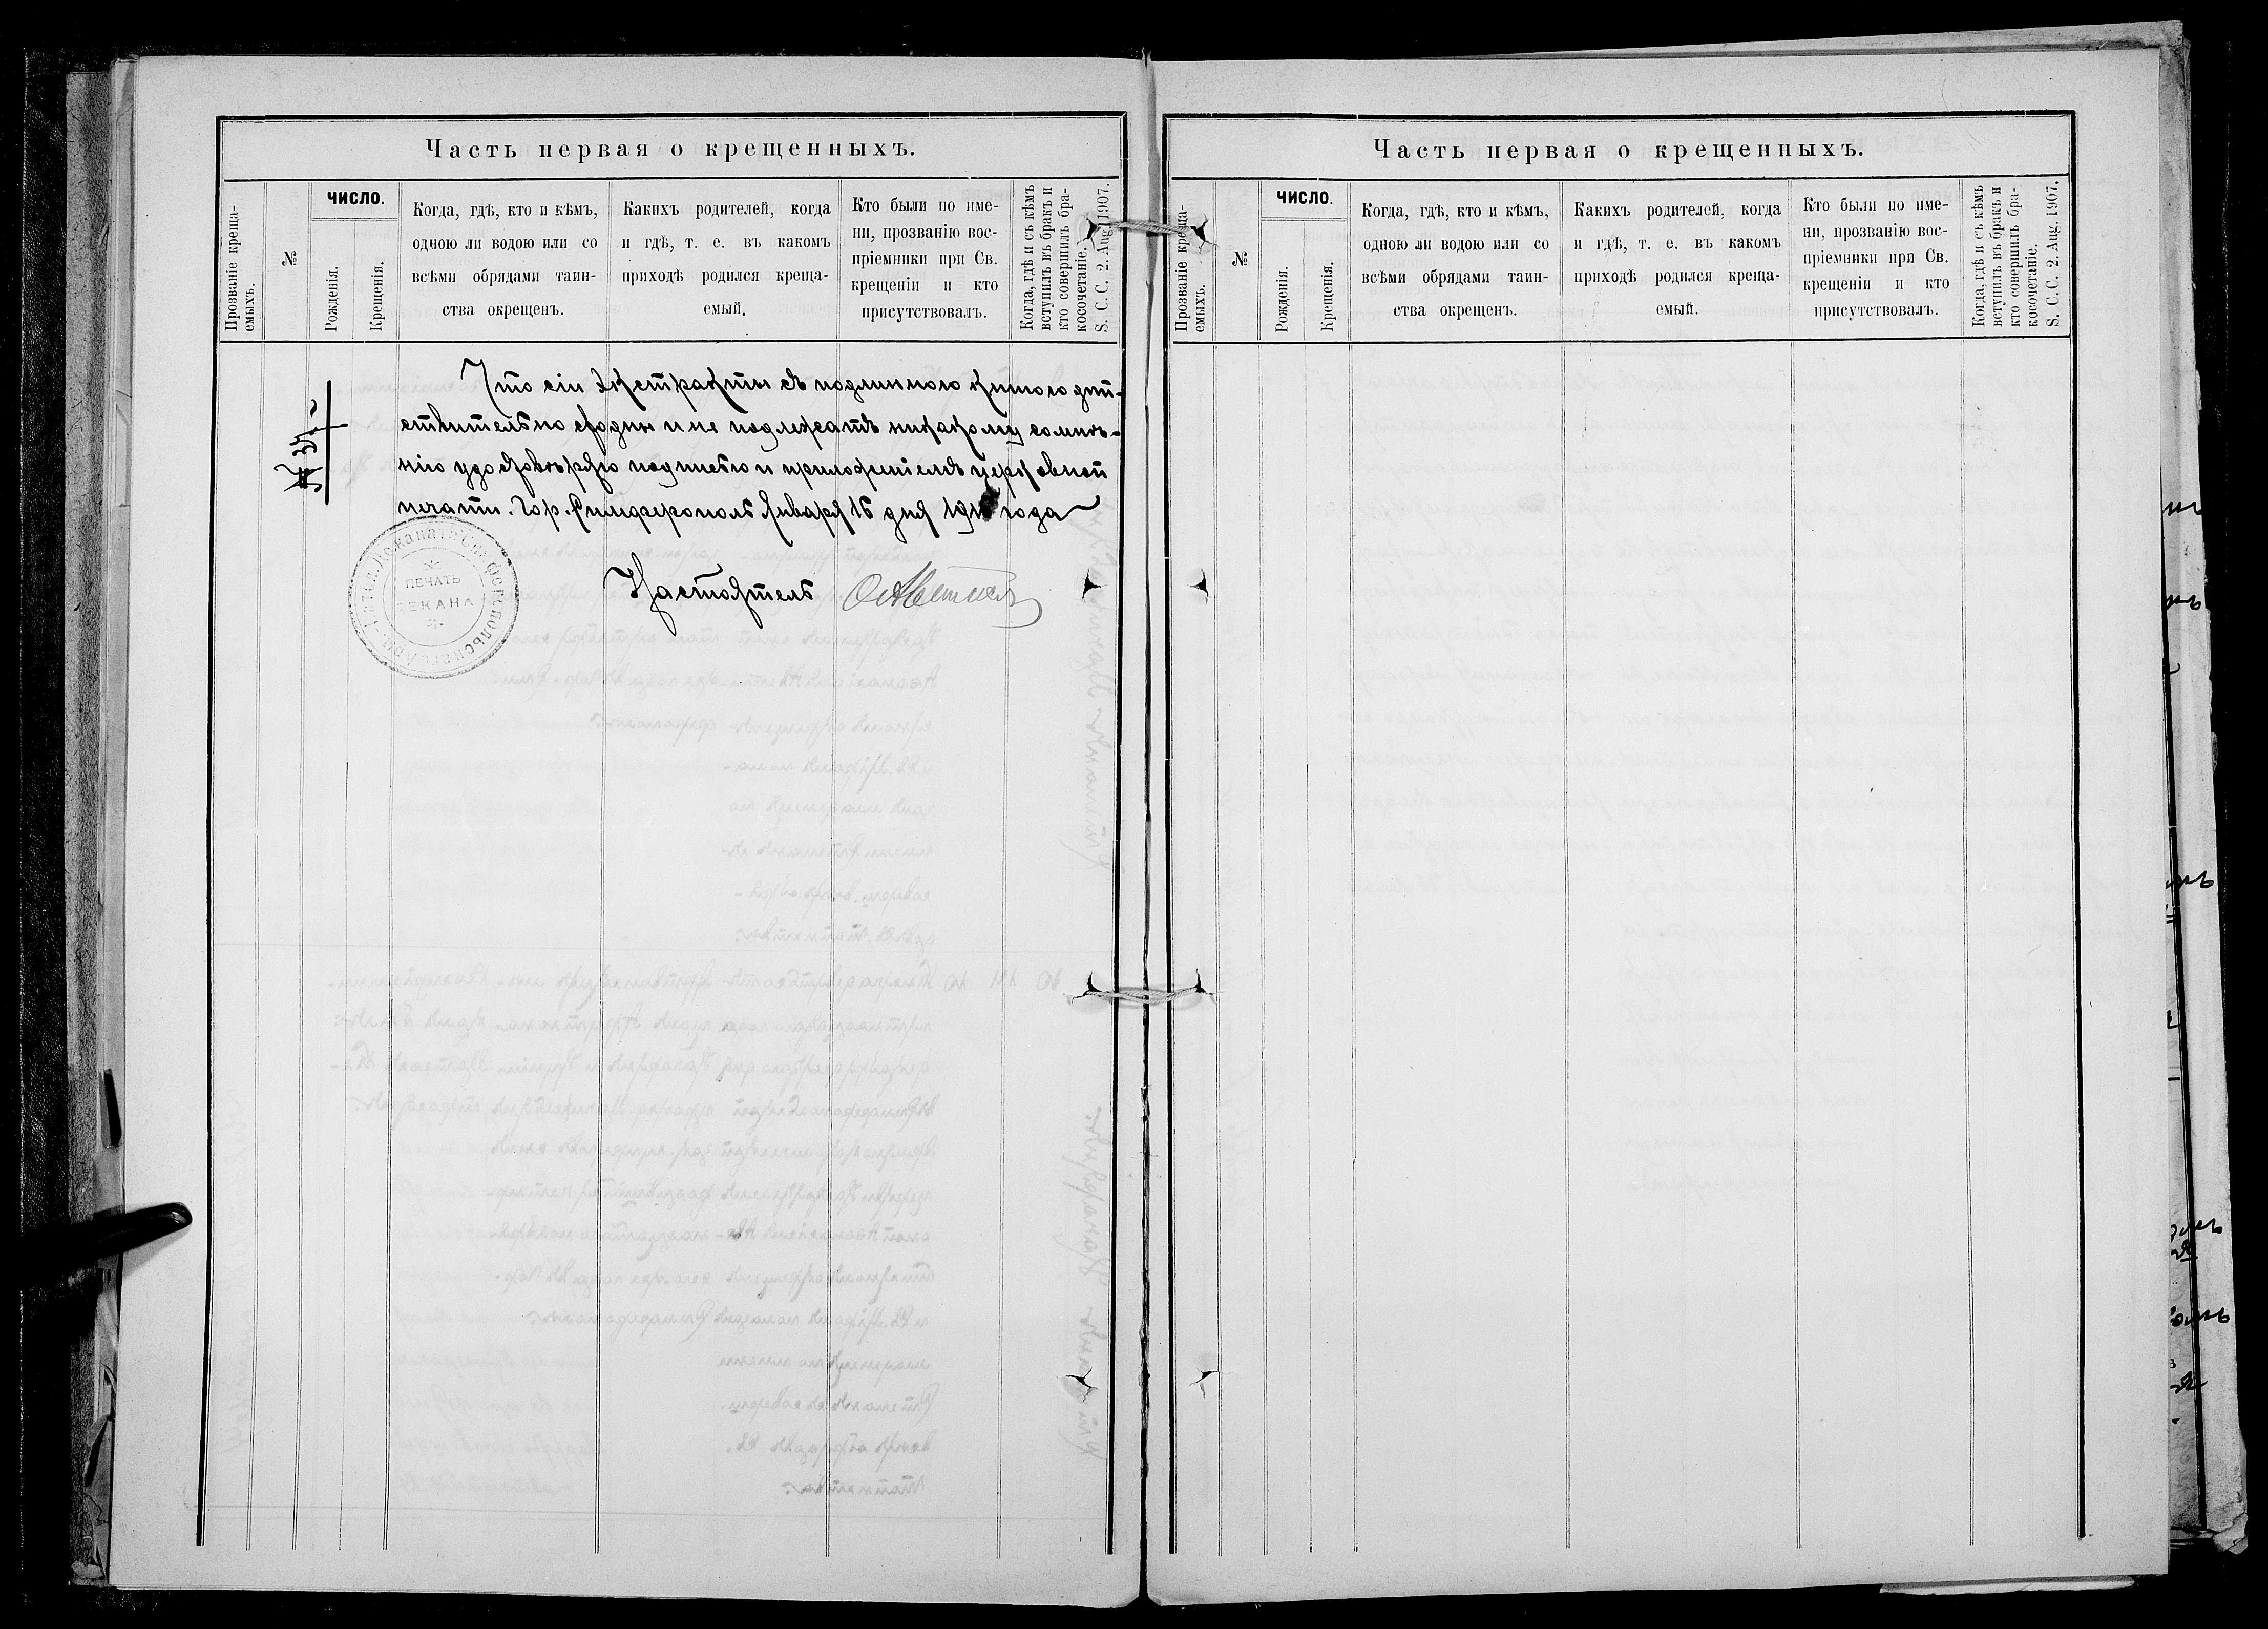 Часть первая о крещенныхъ.
Прозваніе креща-
емыхъ.
№
ЧИСЛО.
Рожденія.
Крещенія.
Когда, гдѣ, кто и кѣмъ,
одною ли водою или со
всѣми обрядами таин-
ства окрещенъ.
Какихъ родителей, когда
и гдѣ, т. е. въ какомъ
приходѣ родился креща-
емый.
Кто были по име-
ни, прозванію вос-
пріемники при Св.
крещеніи и кто
присутствовалъ.
Когда, гдѣ и съ кѣмъ
вступилъ въ бракъ и
кто совершилъ бра-
косочетаніе.
S. C. C. 2. Aug. 1907.
Что сіи Экстракты съ подлинною книгою дѣй-
ствительно сходны и не подлежатъ никакому сомнѣ-
нію удостовѣряю подписью и приложеніемъ церковной
печати. Гор. Симферополь Января 15 дня 191 года
Настоятель
ПЕЧАТЬ
ДЕКАНА
Часть первая о крещенныхъ.
Прозваніе креща-
емыхъ.
№
ЧИСЛО.
Рожденія.
Крещенія.
Когда, гдѣ, кто и кѣмъ,
одною ли водою или со
всѣми обрядами таин-
ства окрещенъ.
Какихъ родителей, когда
и гдѣ, т. е. въ какомъ
приходѣ родился креща-
емый.
Кто были по име-
ни, прозванію вос-
пріемники при Св.
крещеніи и кто
присутствовалъ.
Когда, гдѣ и съ кѣмъ
вступилъ въ бракъ и
кто совершилъ бра-
косочетаніе.
S. C. C. 2. Aug. 1907.